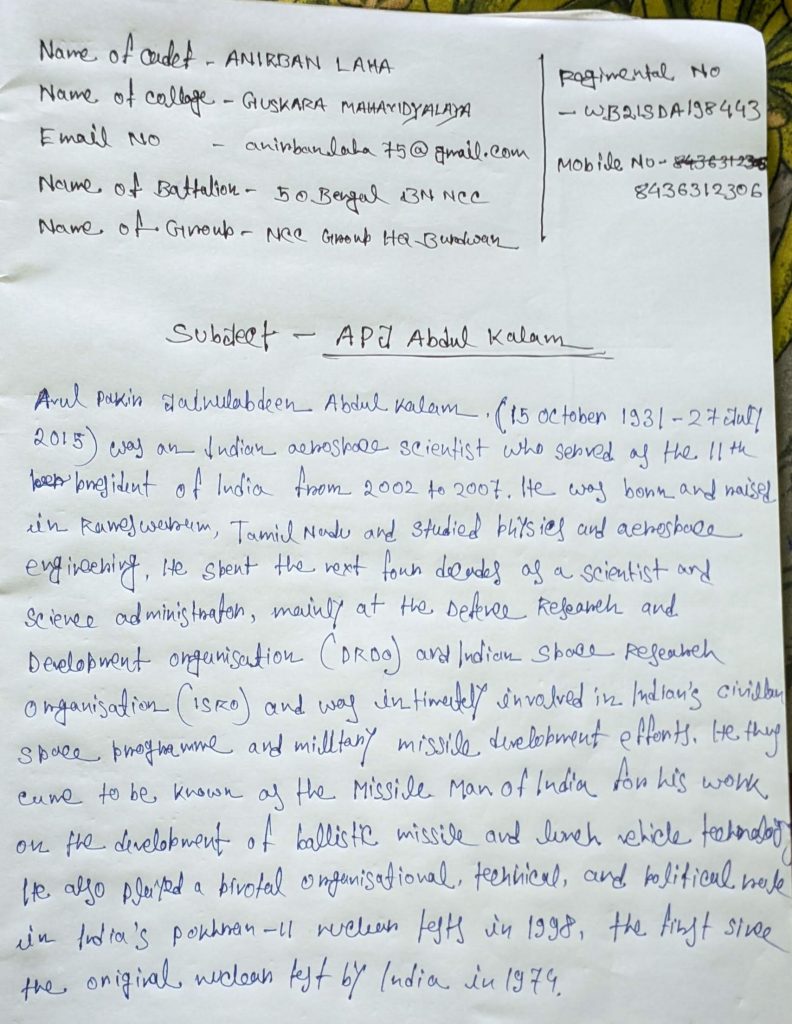 Name of cadet - ANIRBAN LAHA
Name of collage - GUSKARA MAHAVIDYALAYA
Email No - anirbanlaha75@gmail.com
Name of Battalion - 50 Bengal BN NCC
Name of Group - NCC Group HQ Burdwan
Regimental No
- WB21SDA198443
Mobile No - 8436312306
8436312306
Subject - APJ Abdul Kalam
Avul Pakir Jainulabdeen Abdul Kalam. (15 October 1931 - 27 July
2015) was an Indian aerospace scientist who served as the 11th
president of India from 2002 to 2007. He was born and raised
in Rameswaram, Tamil Nadu and studied physics and aerospace
engineering, He spent the next four decades as a scientist and
Science administrator, mainly at the Defence Research and
Development organisation (DRDO) and Indian Space Research
Organisation (ISRO) and was intimately involved in Indian's civilian
space programme and military missile development efforts. He thus
came to be known as the Missile Man of India for his work
on the development of ballistic missile and lunch vehicle technology
He also played a pivotal organisational, technical, and political role
in India's Pokhran-II nuclear tests in 1998, the first since
the original nuclear test by India in 1974.